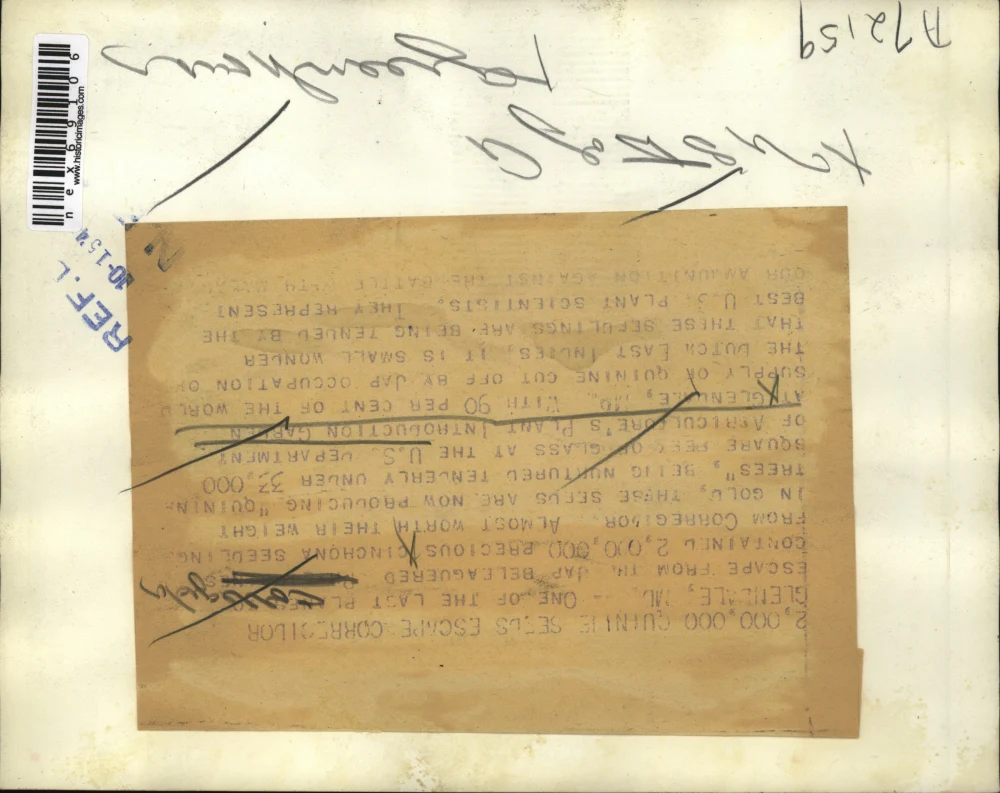 2,000,000 QUININE SEEDS ESCAPE CORREGIDOR
GLENDALE, MD. -- ONE OF THE LAST PLANES TO
ESCAPE FROM TH JAP BELEAGUERED
CONTAINED 2,000,000 PRECIOUS CINCHONA SEEDLING
FROM CORREGIDOR. ALMOST WORTH THEIR WEIGHT
IN GOLD, THESE SEEDS ARE NOW PRODUCING "QUININE
TREES", BEING NURTURED TENDERLY UNDER 33,000
SQUARE FEET OF GLASS AT THE U.S. DEPARTMENT
OF AGRICULTURE'S PLANT INTRODUCTION GARDEN
AT GLENDALE, MD. WITH 90 PER CENT OF THE WORLD
SUPPLY OF QUININE CUT OFF BY JAP OCCUPATION OF
THE DUTCH EAST INDIES, IT IS SMALL WONDER
THAT THESE SEEDLINGS ARE BEING TENDED BY THE
BEST U.S. PLANT SCIENTISTS. THEY REPRESENT
OUR AMMUNITION AGAINST THE BATTLE WITH
Greenhouses
A72159
REF. L
10-15
nex69106
www.historicimages.com